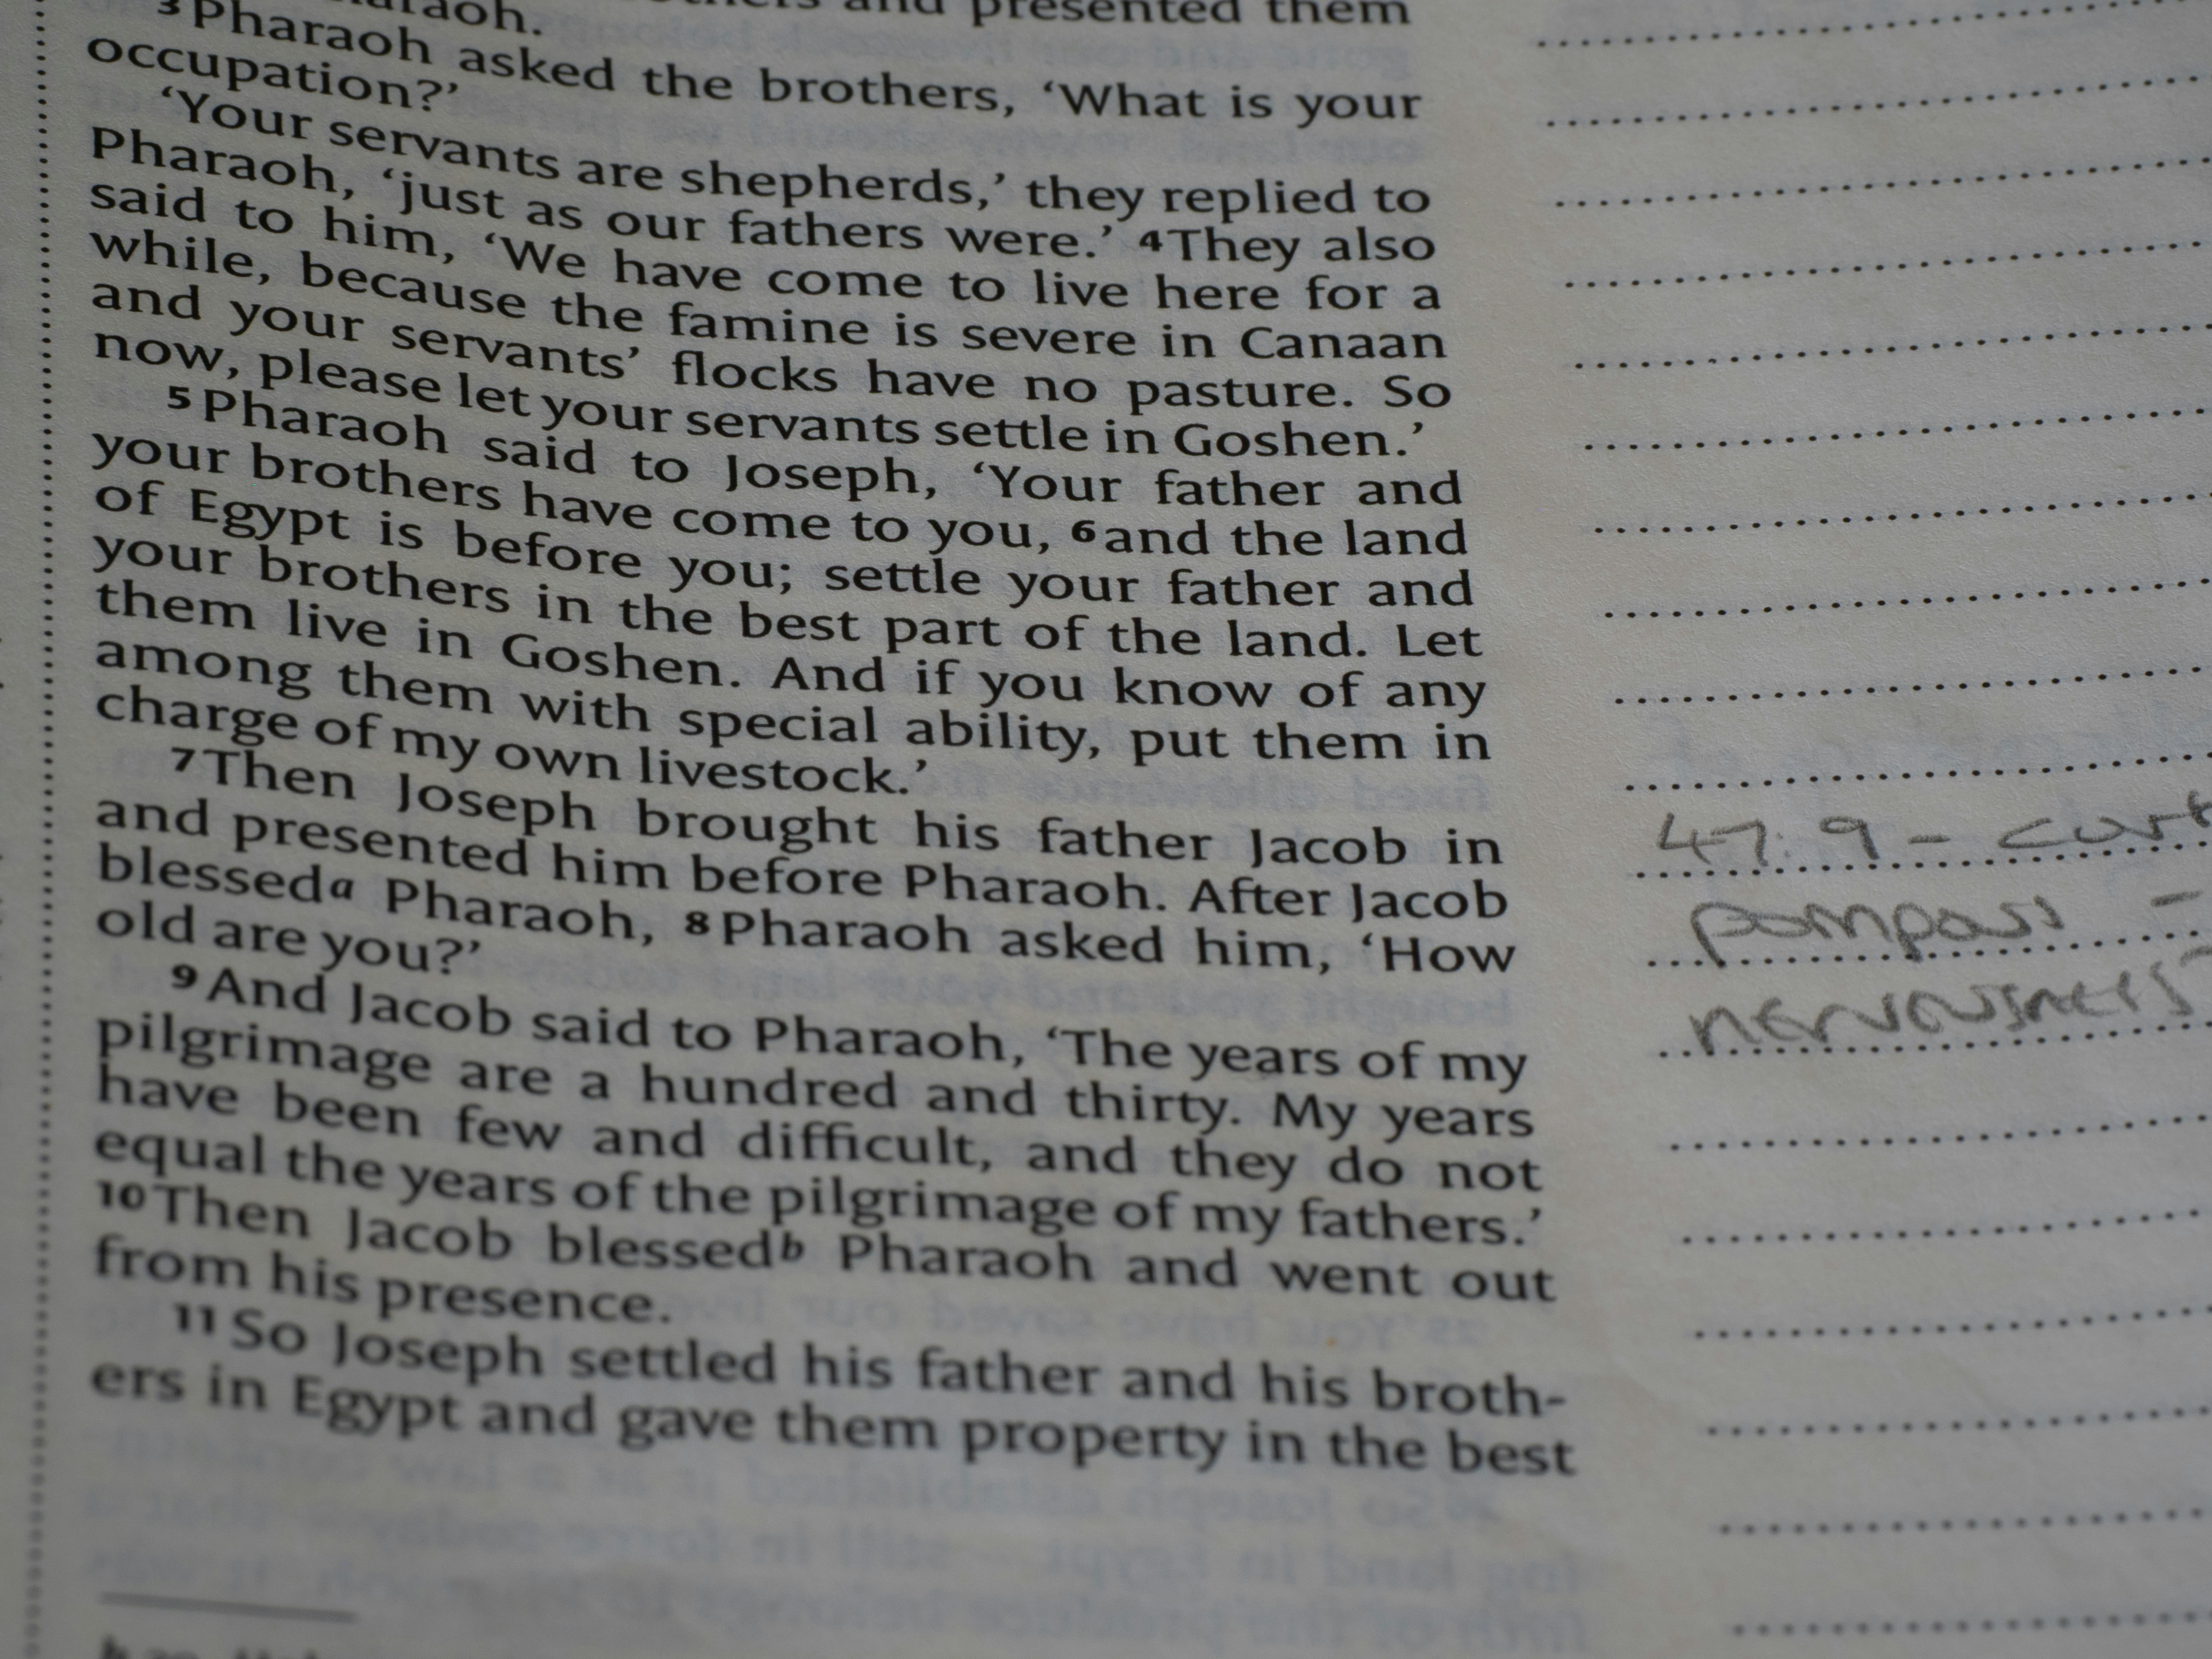 and presented them
3 Pharaoh asked the brothers, ‘What is your
occupation?’
‘Your servants are shepherds,’ they replied to
Pharaoh, ‘just as our fathers were.’ 4 They also
said to him, ‘We have come to live here for a
while, because the famine is severe in Canaan
and your servants’ flocks have no pasture. So
now, please let your servants settle in Goshen.’
5 Pharaoh said to Joseph, ‘Your father and
your brothers have come to you, 6 and the land
of Egypt is before you; settle your father and
your brothers in the best part of the land. Let
them live in Goshen. And if you know of any
among them with special ability, put them in
charge of my own livestock.’
7 Then Joseph brought his father Jacob in
and presented him before Pharaoh. After Jacob
blessed a Pharaoh, 8 Pharaoh asked him, ‘How
old are you?’
9 And Jacob said to Pharaoh, ‘The years of my
pilgrimage are a hundred and thirty. My years
have been few and difficult, and they do not
equal the years of the pilgrimage of my fathers.’
10 Then Jacob blessed b Pharaoh and went out
from his presence.
11 So Joseph settled his father and his broth-
ers in Egypt and gave them property in the best
47:9 -
nervousness